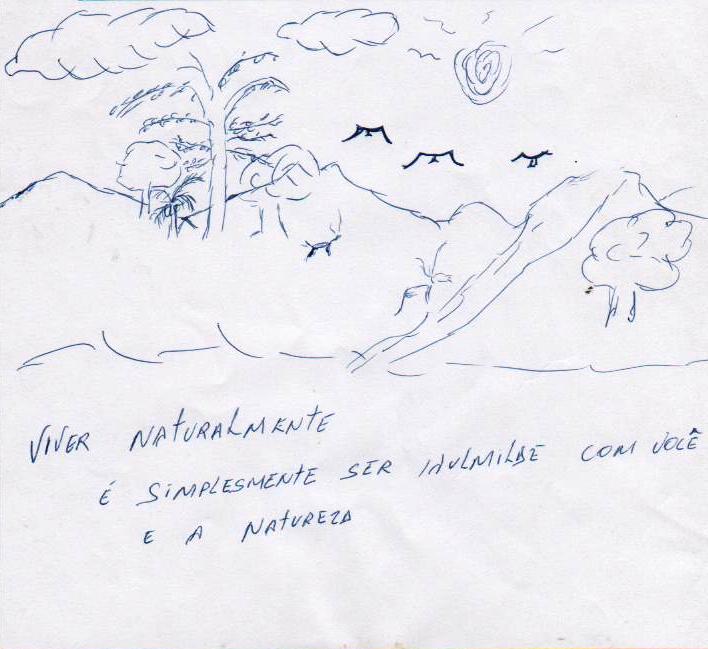 VIVER NATURALMENTE
É SIMPLESMENTE SER HULMILDE COM VOCÊ
E A NATUREZA